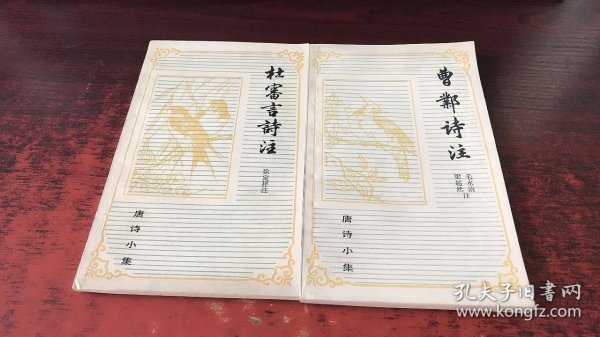 杜審言詩注
徐定祥注
唐诗小集
曹鄴诗注
梁超然
毛水清注
唐诗小集
孔夫子旧书网
www.kongfz.com